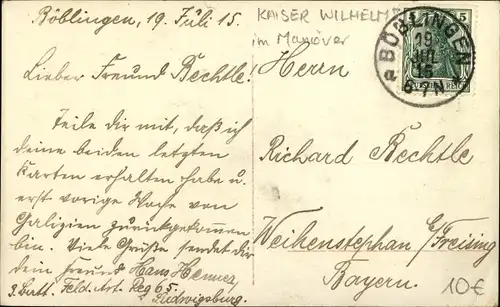 Böblingen, 19. Juli 15.
Lieber Freund Rechtle!
Teile dir mit, daß ich
deine beiden letzten
Karten erhalten habe u.
erst vorige Woche von
Galizien zurückgekommen
bin. Viele Grüße sendet dir
dein Freund Hans
2. Batt. Feld. Art. Reg 65.
Ludwigsburg.
KAISER WILHELM
im Manöver
BÖBLINGEN
19
JUL
15
6-7N
a
5
Herrn
Richard Rechtle
Weihenstephan b/Freising
Bayern.
10€